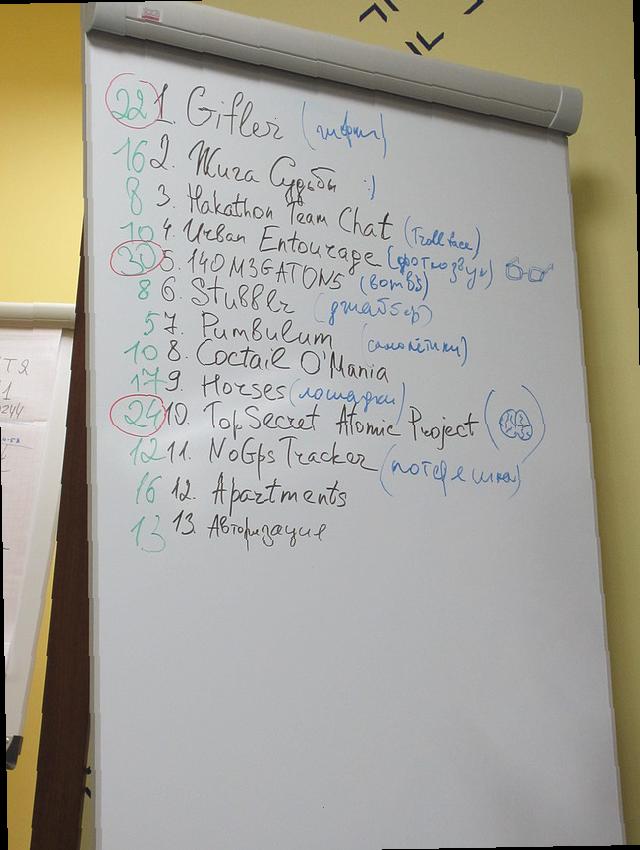 22 1. Gifler (гифки)
16 2. Жига Судьбы :)
8 3. Hakathon Team Chat
10 4. Urban Entourage (Trollface)
30 5. 140M3GATON5 (фотозвук)
8 6. Stubblr (вотвъ)
5 7. Pumbulum (джаббер)
10 8. Coctail O'Mania (самолётики)
17 9. Horses (лошадки)
24 10. Top Secret Atomic Project
12 11. NoGps Tracker (потеряшка)
16 12. Apartments
13 13. Авторизация